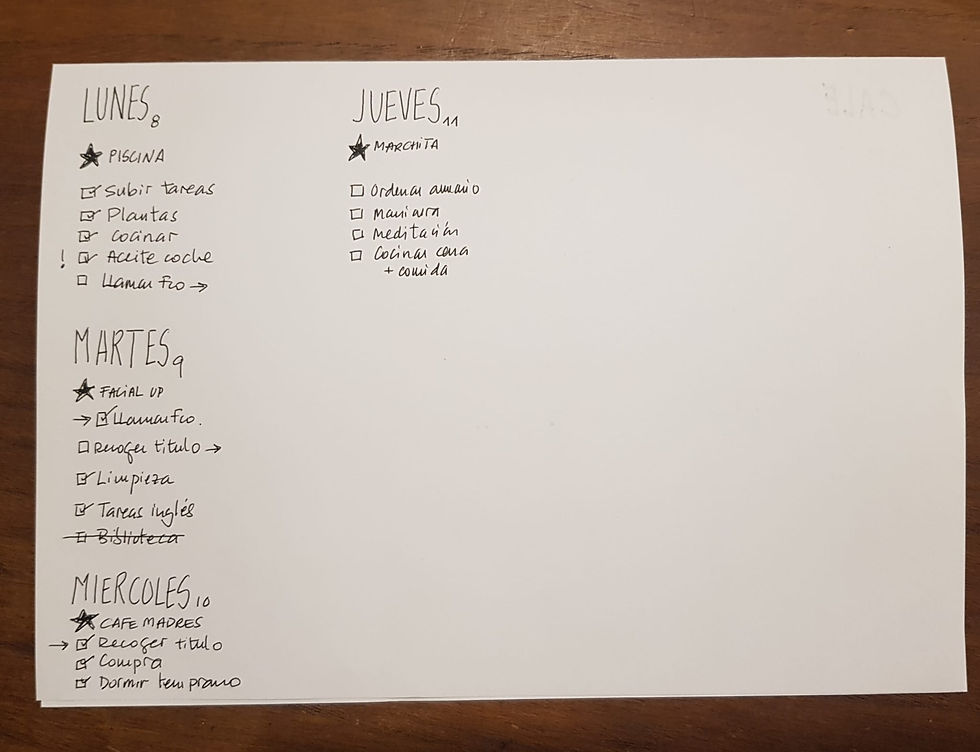 LUNES 8
★ PISCINA
☑ Subir tareas
☑ Plantas
☑ Cocinar
! ☑ Aceite coche
☐ Llamar Fco →
MARTES 9
★ FACIAL UP
→ ☑ Llamar Fco.
☐ Recoger titulo →
☑ Limpieza
☑ Tareas inglés
☐ Biblioteca
MIERCOLES 10
★ CAFE MADRES
→ ☑ Recoger titulo
☑ Compra
☑ Dormir temprano
JUEVES 11
★ MARCHITA
☐ Ordenar armario
☐ Manicura
☐ Meditación
☐ Cocinar cena
+ comida